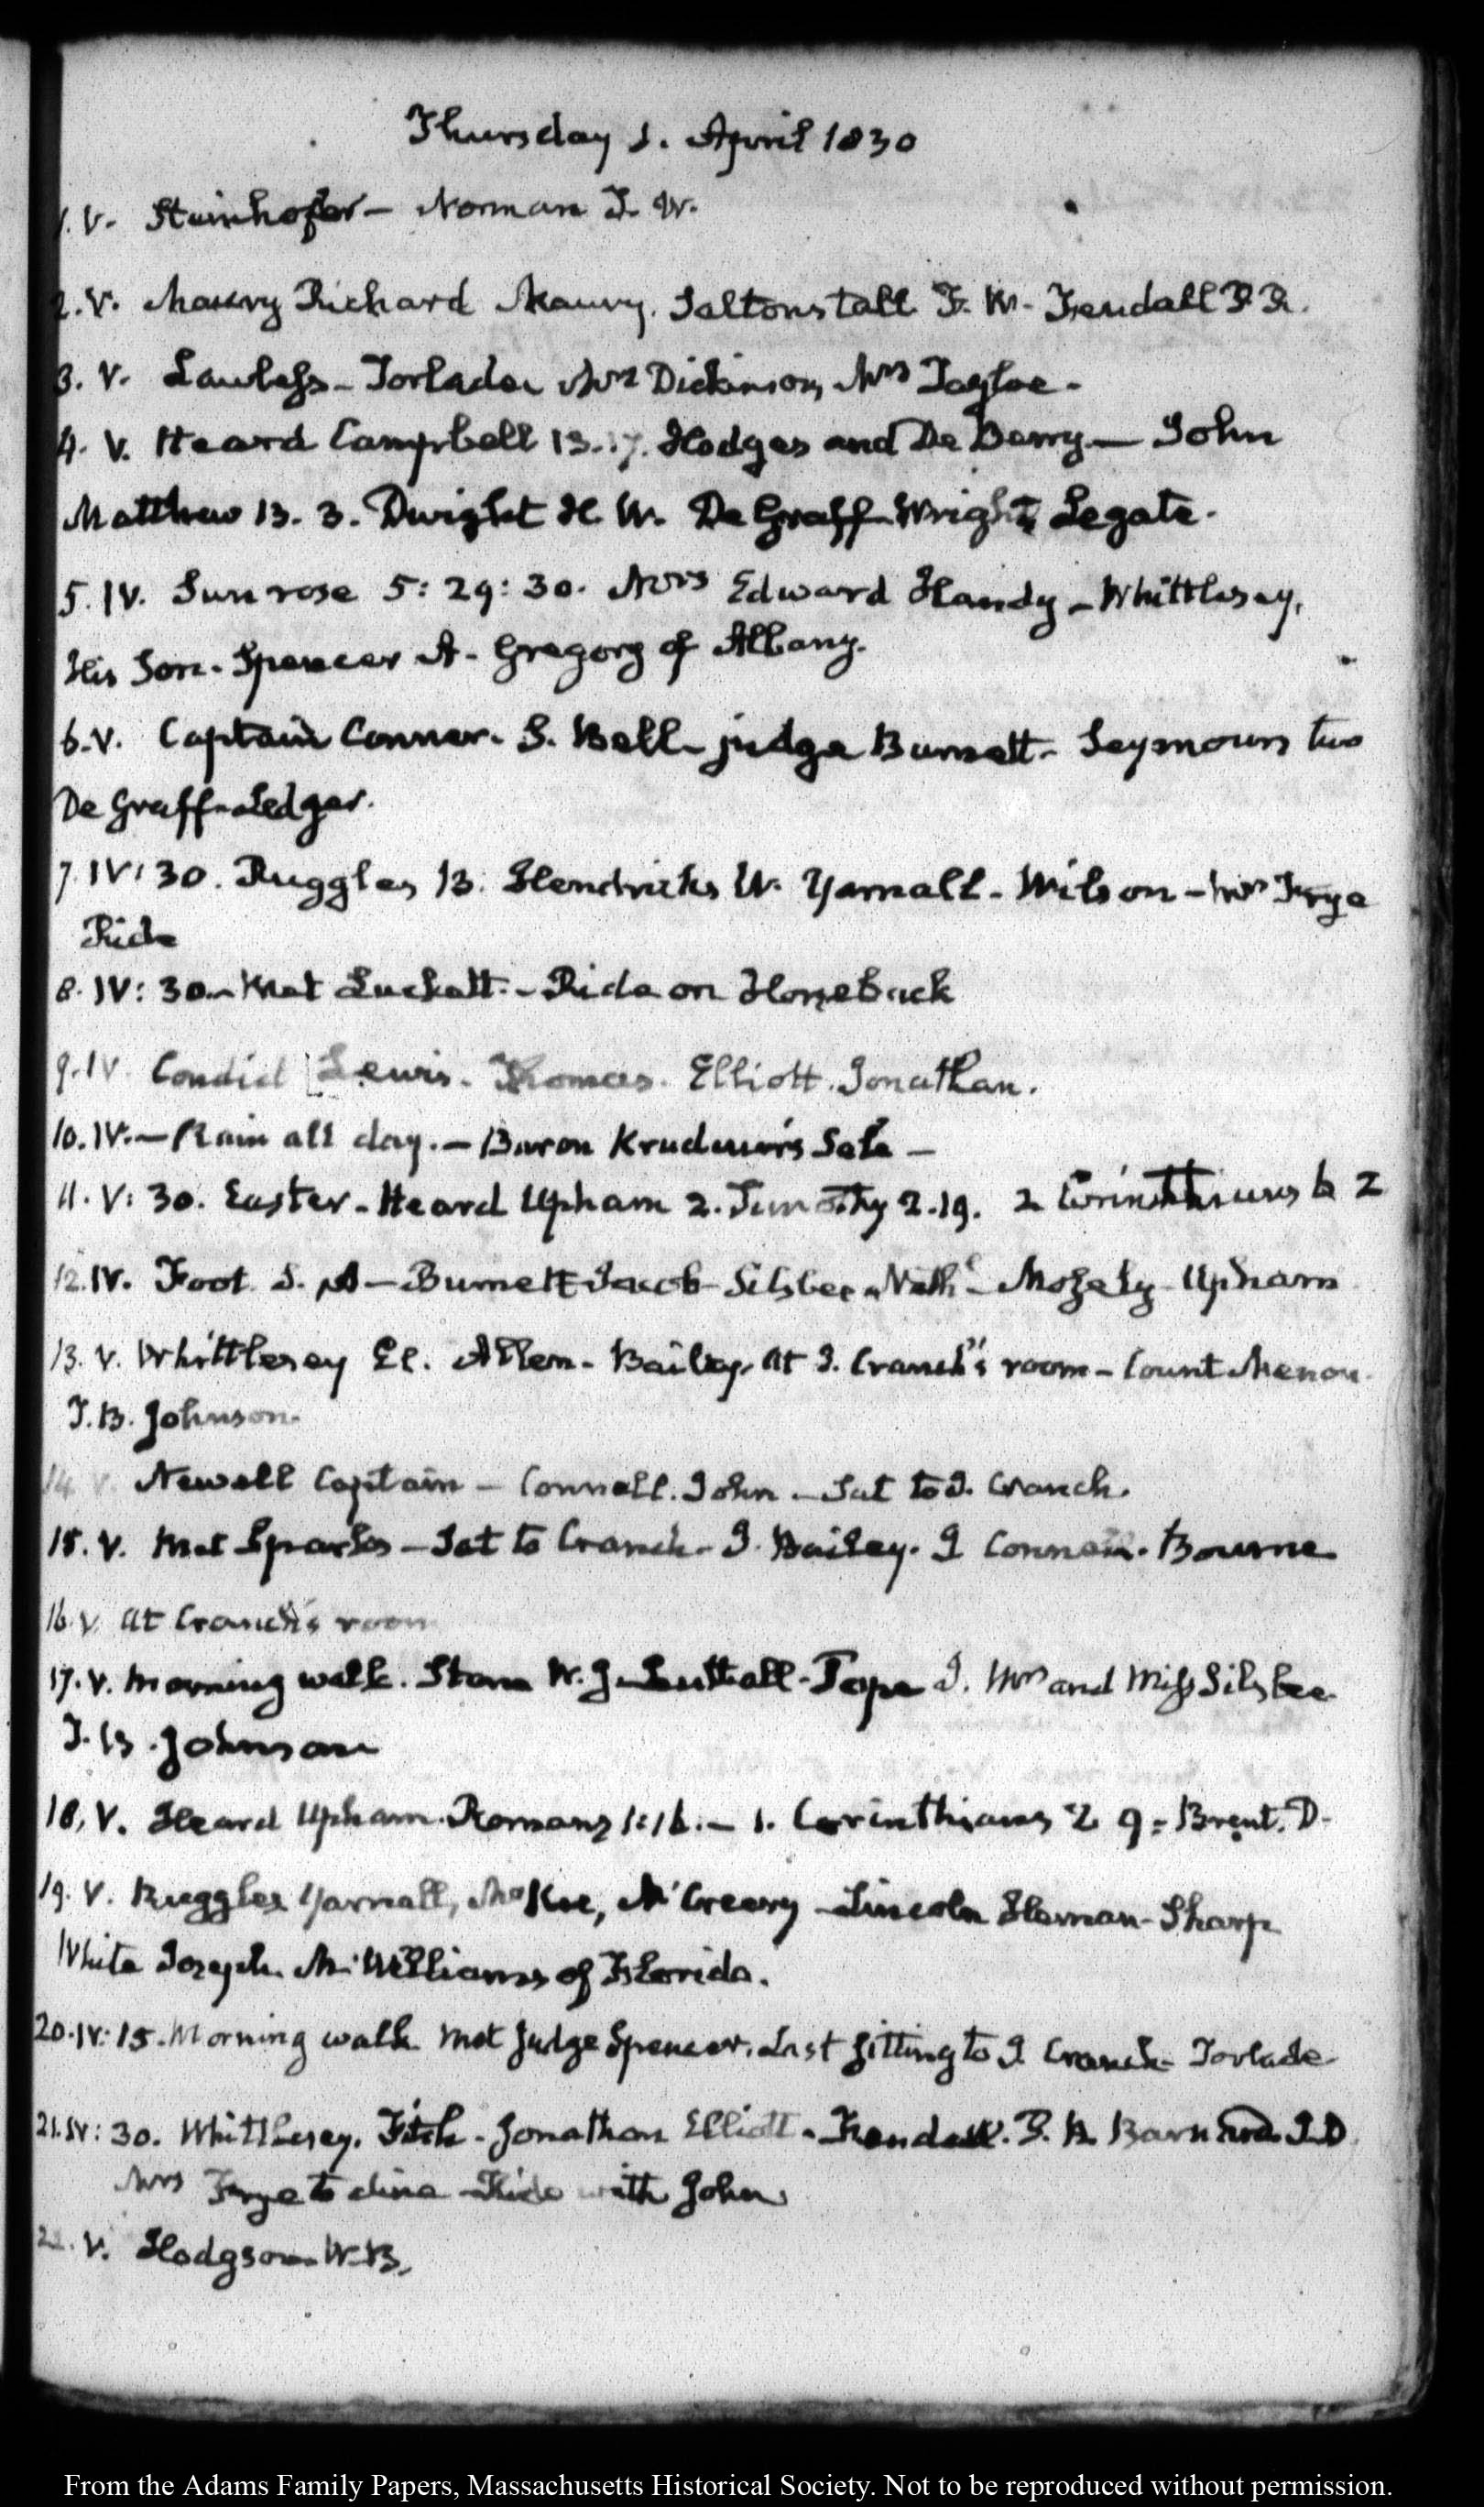 Thursday 1. April 1830
1. V. Steinhofer - Norman T. W.
2. V. Maury Richard Maury. Saltonstall F. W. - Fendall P. R.
3. V. Lawless - Torlade Mrs Dickinson, Mrs Tayloe -
4. V. Heard Campbell 13.17. Hodges and De Berry - John
Matthew 13. 3. Dwight H. W. De Graff - Wright, Legate.
5. IV. Sun rose 5:29:30. Mrs Edward Handy - Whittlesey,
His Son - Spencer A - Gregory of Albany.
6. V. Captain Conner. S. Bell - judge Burnett - Seymours two
De Graff - Ledger.
7. IV:30. Ruggles B. Hendricks W. Yarnall - Wilson - Mrs Frye
Ride
8. IV:30 - Met Luckett - Ride on Horseback
9. IV. Condict Lewis. Thomas. Elliott. Jonathan.
10. IV. - Rain all day. - Baron Krudener's Sale -
11. V:30. Easter - Heard Upham 2. Timothy 2.19. 2 Corinthians 6 2
12. IV. Foot S. A - Burnett Jacob - Silsbee Nathl - Mosely - Upham
13. V. Whittlesey El. Allen - Bailey. At J. Cranch's room - Count Menou.
T. B. Johnson.
14 V. Newell Captain - Connell. John - Sat to J. Cranch.
15. V. Met Sparks - Sat to Cranch - J. Bailey. J Connell. Bourne
16. V. At Cranch's room
17. V. Morning walk. Stone W. J. - Luttrell - Pope J. Mrs and Miss Silsbee
T. B. Johnson
18. V. Heard Upham. Romans 1:16. - 1. Corinthians 2 9 - Brent. D.
19. V. Ruggles Yarnall, McKee, McCreery - Lincoln Heman - Sharp
White Joseph. M. Williams of Florida.
20. IV:15. Morning walk met Judge Spencer. Last sitting to J Cranch - Torlade
21. IV:30. Whittlesey. Fitch - Jonathan Elliott - Kendall. Barnard I. D.
Mrs Frye to dine - Ride with John
22. V. Hodgson W. B.
From the Adams Family Papers, Massachusetts Historical Society. Not to be reproduced without permission.